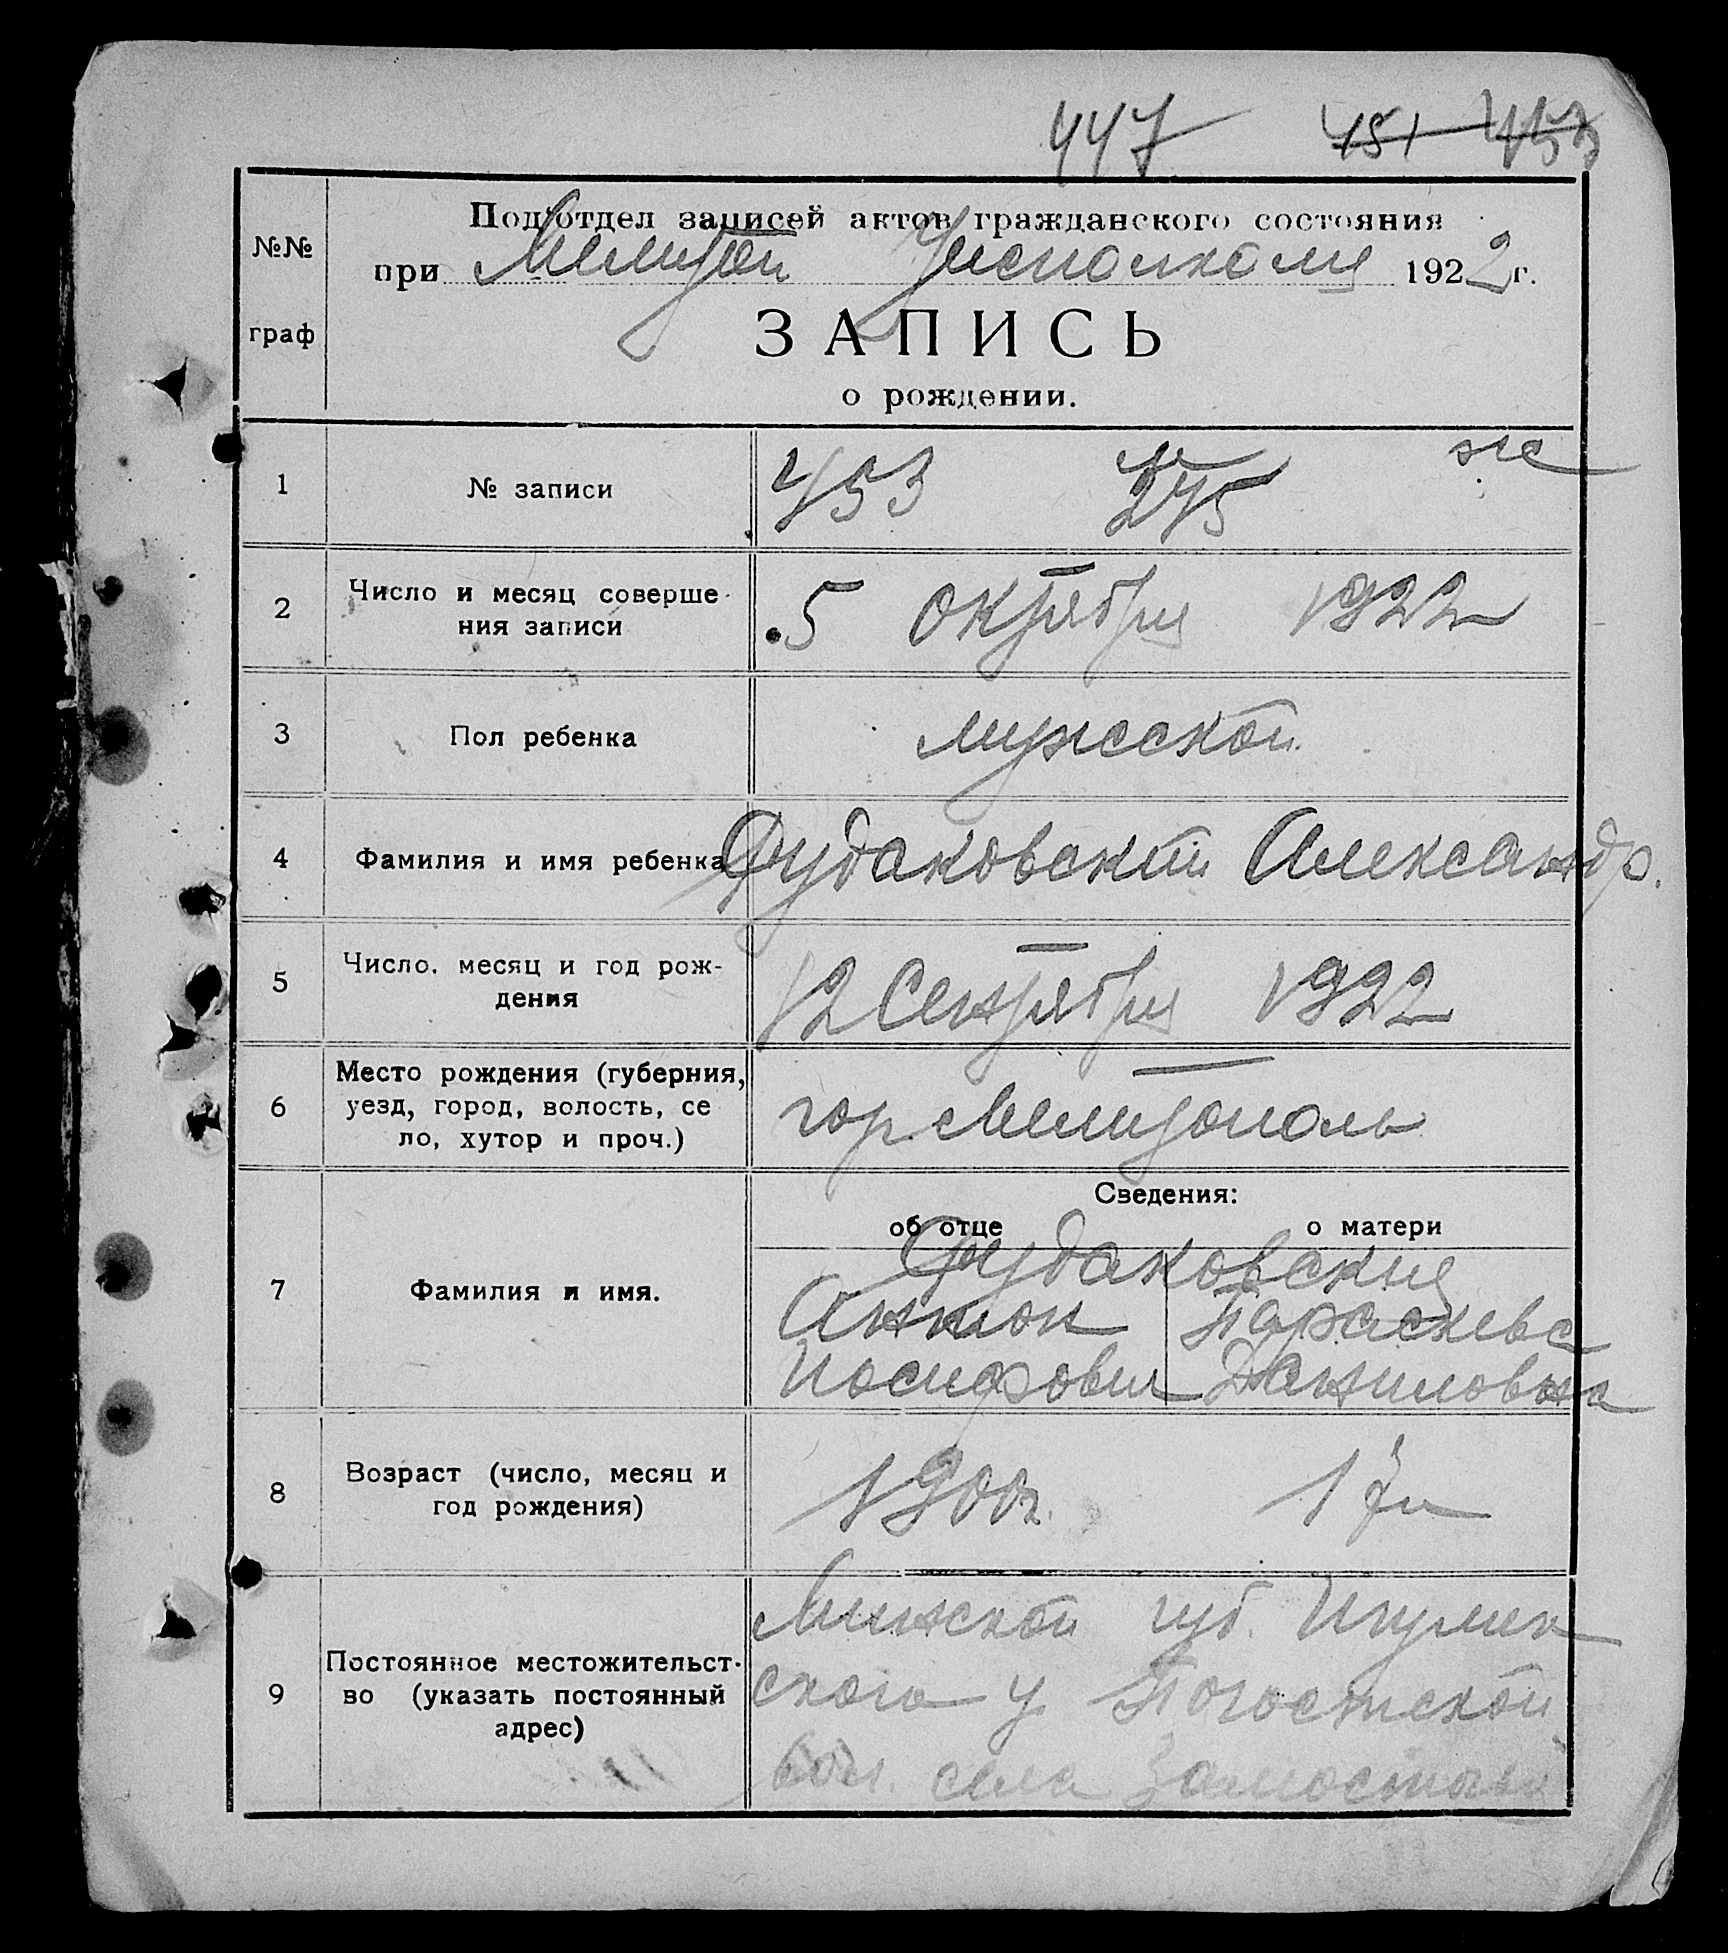 447 451 453
№№ граф
Подотдел записей актов гражданского состояния
при Мелитоп Уисполкома 1922 г.
ЗАПИСЬ
о рождении.
1 № записи 453 м 275 же
2 Число и месяц соверше-
ния записи 5 октября 1922
3 Пол ребенка мужеской
4 Фамилия и имя ребенка Фудаковский Александр.
5 Число, месяц и год рож-
дения 12 Сентября 1922
6 Место рождения (губерния,
уезд, город, волость, се
ло, хутор и проч.) гор. Мелитополь
Сведения:
об отце о матери
7 Фамилия и имя. Фудаковския
Антон Параскева
Иосифович Даниловна
8 Возраст (число, месяц и
год рождения) 1900г. 17л
9 Постоянное местожительст-
во (указать постоянный
адрес)
Минской губ. Игумен
ского у Погостской
вол. села Замостовья